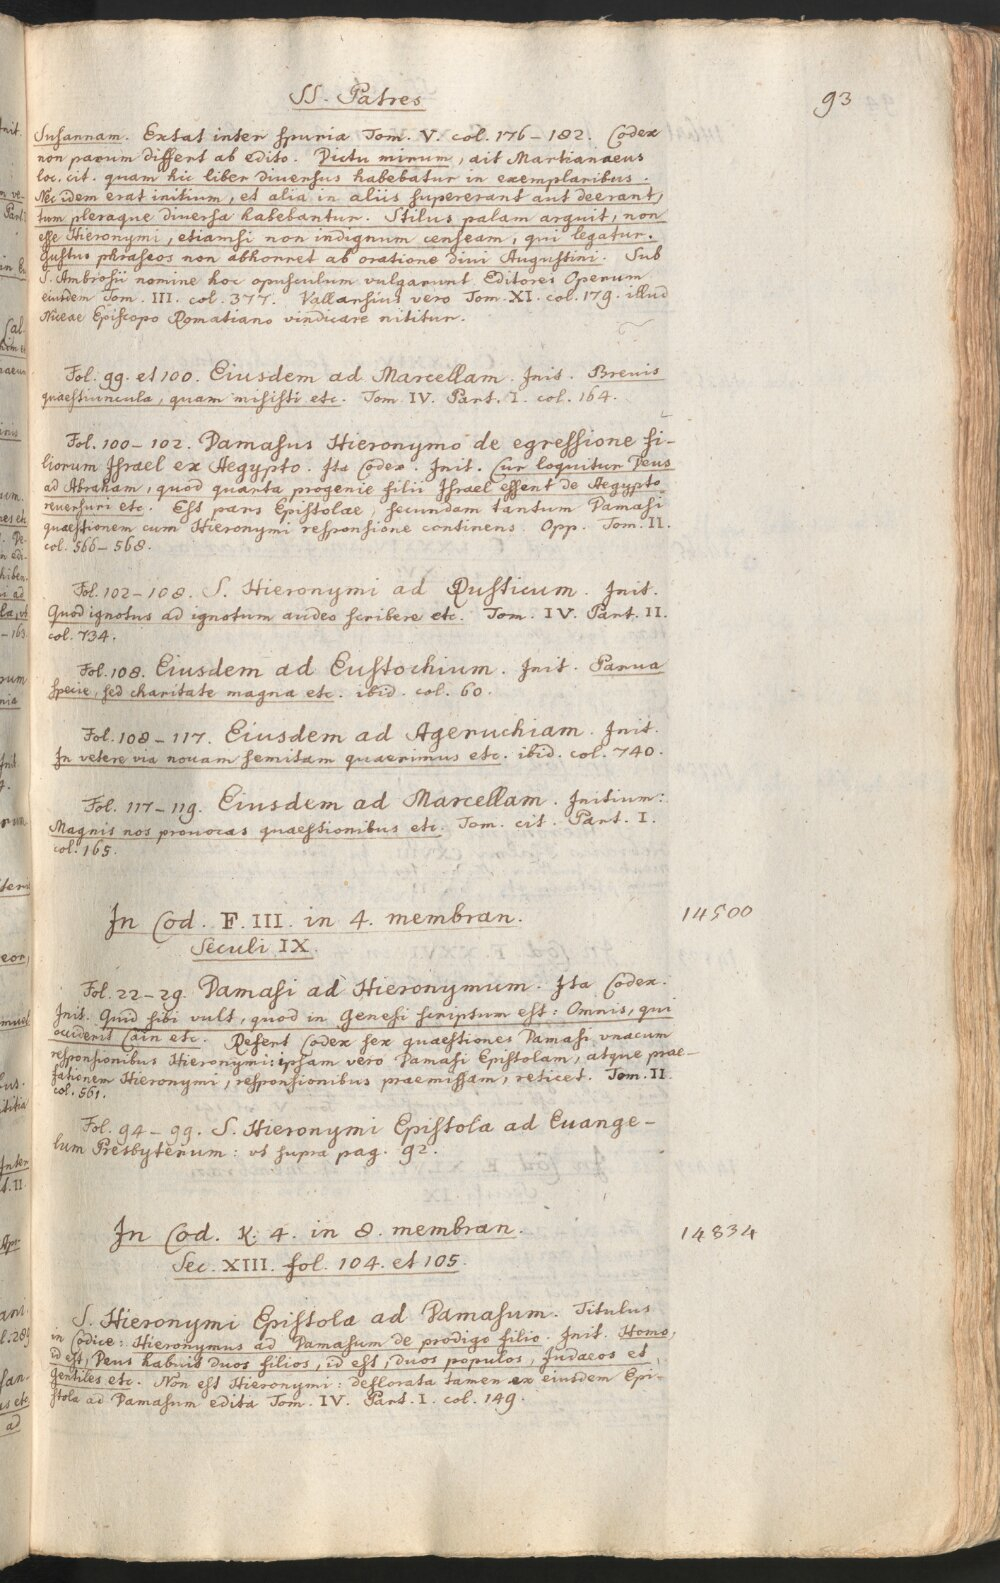 SS. Patres
93
Susannam. Extat inter spuria Tom. V. col. 176–182. Codex
non parum differt ab edito. Dictu mirum, ait Martianaeus
loc. cit. quam hic liber diuersus habebatur in exemplaribus.
Nec idem erat initium, et alia in aliis supererant aut deerant,
tum pleraque diuersa habebantur. Stilus palam arguit, non
esse Hieronymi, etiamsi non indignum censeam, qui legatur.
Gustus phraseos non abhorret ab oratione diui Augustini. Sub
S. Ambrosii nomine hoc opusculum vulgarunt Editores Operum
eiusdem Tom. III. col. 377. Vallarsius vero Tom. XI. col. 179. illud
Niceae Episcopo Romatiano vindicare nititur.
Fol. 99. et 100. Eiusdem ad Marcellam. Init. Breuis
quaestiuncula, quam misisti etc. Tom. IV. Part. I. col. 164.
Fol. 100–102. Damasus Hieronymo de egressione fi-
liorum Israel ex Aegypto. Ita Codex. Init. Cur loquitur Deus
ad Abraham, quod quarta progenie filii Israel essent de Aegypto
reuersuri etc. Est pars Epistolae, secundam tantum Damasi
quaestionem cum Hieronymi responsione continens. Opp. Tom. II.
col. 566–568.
Fol. 102–108. S. Hieronymi ad Rusticum. Init.
Quod ignotus ad ignotum audeo scribere etc. Tom. IV. Part. II.
col. 734.
Fol. 108. Eiusdem ad Eustochium. Init. Parua
specie, sed charitate magna etc. ibid. col. 60.
Fol. 108–117. Eiusdem ad Ageruchiam. Init.
In vetere via nouam semitam quaerimus etc. ibid. col. 740.
Fol. 117–119. Eiusdem ad Marcellam. Initium:
Magnis nos prouocas quaestionibus etc. Tom. cit. Part. I.
col. 165.
In Cod. F. III. in 4. membran.
14500
Seculi IX.
Fol. 22–29. Damasi ad Hieronymum. Ita Codex.
Init. Quid sibi vult, quod in Genesi scriptum est: Omnis, qui
occiderit Cain etc. Refert Codex sex quaestiones Damasi vnacum
responsionibus Hieronymi: ipsam vero Damasi Epistolam, atque prae-
fationem Hieronymi, responsionibus praemissam, reticet. Tom. II.
col. 561.
Fol. 94–99. S. Hieronymi Epistola ad Euange-
lum Presbyterum: vt supra pag. 92.
In Cod. K. 4. in 8. membran.
14834
Sec. XIII. fol. 104. et 105.
S. Hieronymi Epistola ad Damasum. Titulus
in Codice: Hieronymus ad Damasum de prodigo filio. Init. Homo,
id est, Deus habuit duos filios, id est, duos populos, Judaeos et
Gentiles etc. Non est Hieronymi: deflorata tamen ex eiusdem Epi-
stola ad Damasum edita Tom. IV. Part. I. col. 149.